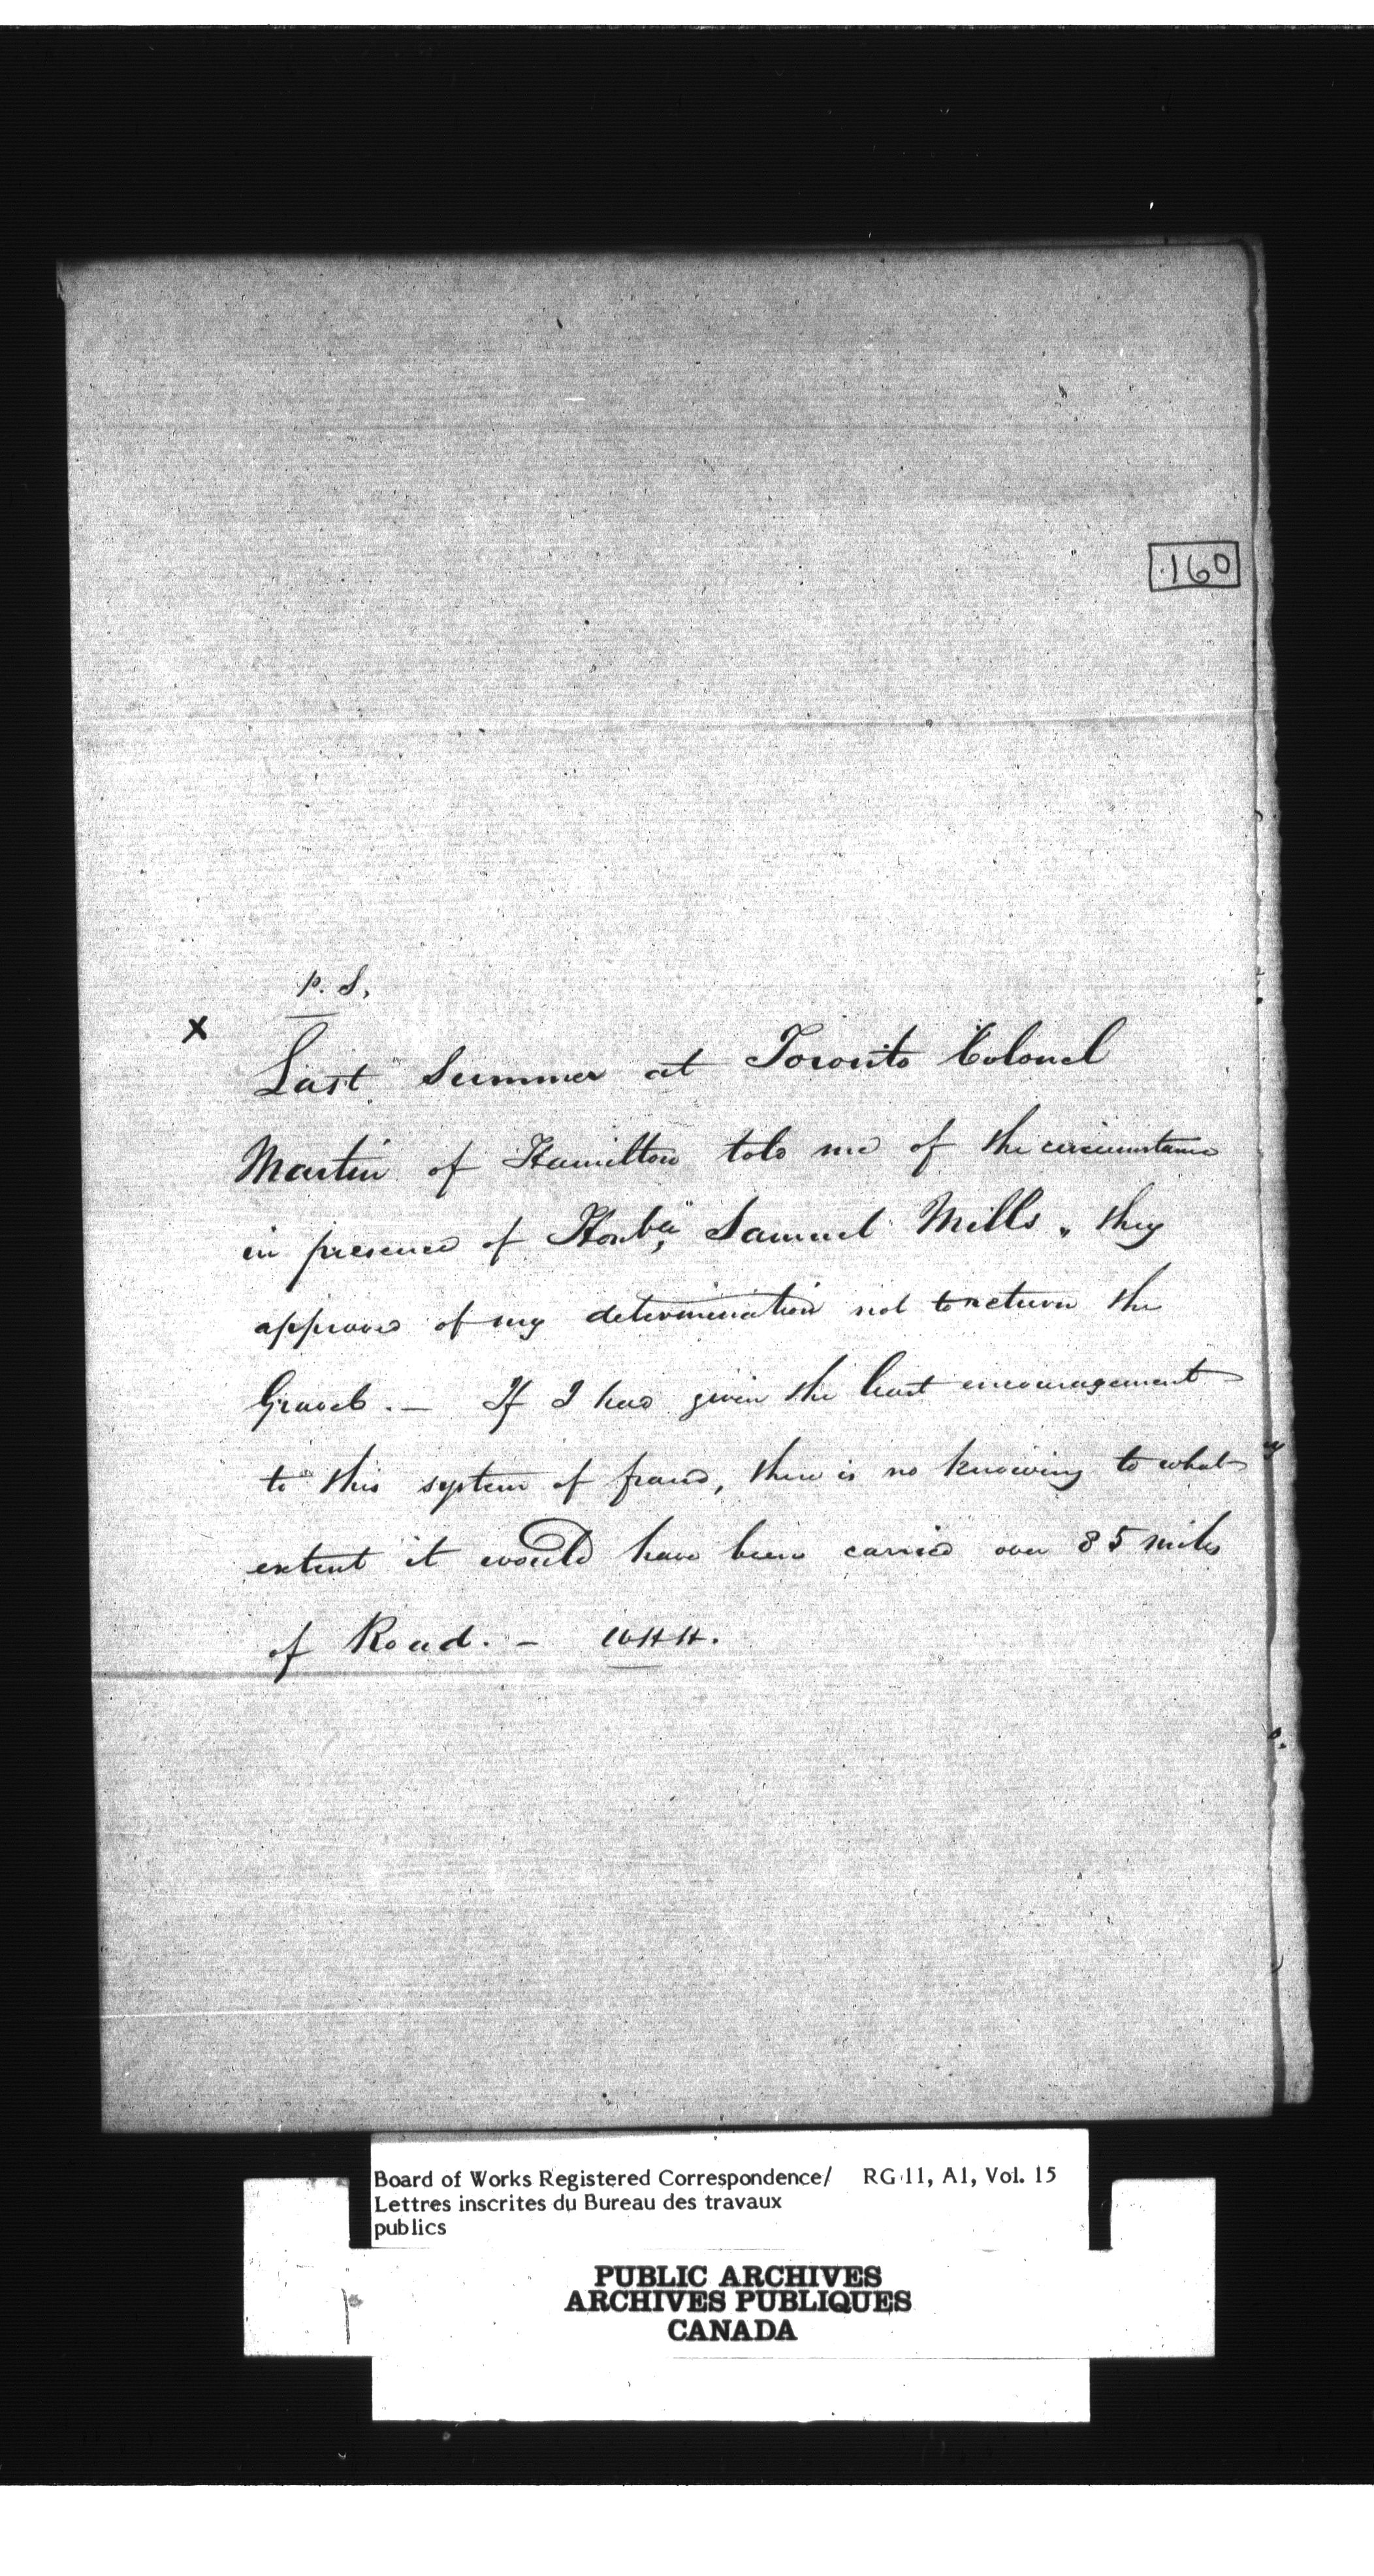 160
P. S,
X
Last Summer at Toronto Colonel
Martin of Hamilton told me of the circumstance
in presence of Honble Samuel Mills, they
approved of my determination not to return the
Gravel. – If I had given the least encouragement
to this system of fraud, there is no knowing to what
extent it would have been carried over 35 miles
of Road. – WHH.
Board of Works Registered Correspondence/ RG 11, A1, Vol. 15
Lettres inscrites du Bureau des travaux
publics
PUBLIC ARCHIVES
ARCHIVES PUBLIQUES
CANADA